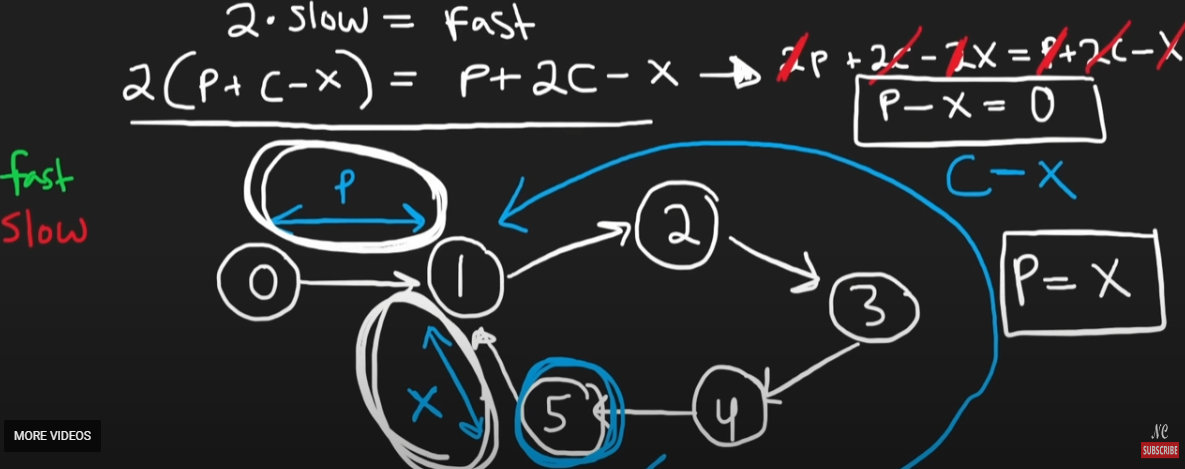 2 · slow = fast
2(P + C - X) = P + 2C - X → 2P + 2C - 2X = P + 2C - X
P - X = 0
C - X
fast
slow
P
P = X
0
1
2
3
X
5
4
MORE VIDEOS
NC
SUBSCRIBE